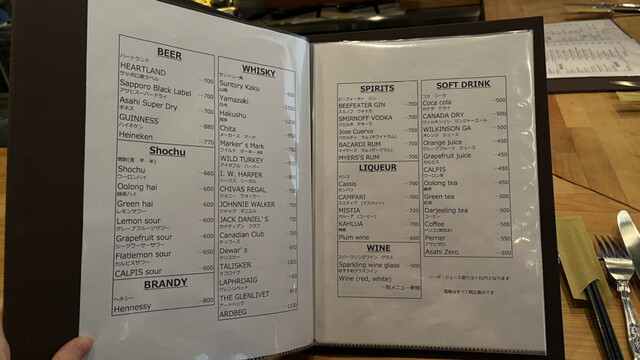 BEER
ハートランド
HEARTLAND
サッポロ黒ラベル
Sapporo Black Label --700
アサヒスーパードライ
Asahi Super Dry --700
ギネス
GUINNESS --880
ハイネケン
Heineken --770
Shochu
Shochu --660
ウーロンハイ
Oolong hai --600
緑茶ハイ
Green hai --600
レモンサワー
Lemon sour --600
グレープフルーツサワー
Grapefruit sour --600
シークワーサーサワー
Flatlemon sour --650
カルピスサワー
CALPIS sour --600
BRANDY
ヘネシー
Hennessy --800
WHISKY
サントリー角
Suntory Kaku
山崎
Yamazaki
白州
Hakushu
知多
Chita
メーカーズ マーク
Marker' s Mark
ワイルド ターキー
WILD TURKEY
I. W. HARPER
シーバス リーガル
CHIVAS REGAL
ジョニー ウォーカー
JOHNNIE WALKER
ジャック ダニエル
JACK DANIEL'S
カナディアン クラブ
Canadian Club --700
デュワーズ
Dewar' s --600
タリスカー
TALISKER --1000
ラフロイグ
LAPHROAIG
グレンリベット
THE GLENLIVET
アードベッグ
ARDBEG --1100
SPIRITS
ビーフィーター ジン
BEEFEATER GIN --700
スミノフ ウォッカ
SMIRNOFF VODKA --700
クエルボ テキーラ
Jose Cuervo --700
バカルディ ラム(ホワイトラム)
BACARDI RUM --700
マイヤーズ ラム(ダークラム)
MYERS'S RUM --700
LIQUEUR
カシス
Cassis --700
カンパリ
CAMPARI --700
ミスティア
MISTIA --720
カルーア(コーヒー)
KAHLUA --700
梅酒
Plum wine --660
WINE
スパークリングワイン グラス
Sparkling wine glass --900
おすすめグラスワイン
Wine (red, white)
--別メニュー参照
SOFT DRINK
コカ コーラ
Coca cola --500
カナダ ドライ
CANADA DRY --500
ウィルキンソン ジンジャーエール
WILKINSON GA --500
オレンジ ジュース
Orange juice --400
グレープフルーツ ジュース
Grapefruit juice --400
カルピス
CALPIS --400
ウーロン茶
Oolong tea --400
緑茶
Green tea --500
紅茶
Darjeeling tea --500
コーヒー
Coffee --500
ペリエ(発泡水)
Perrier --550
アサヒゼロ
Asahi Zero --900
ソーダ・ジュース割りは+50円となります
価格はすべて税込表示です